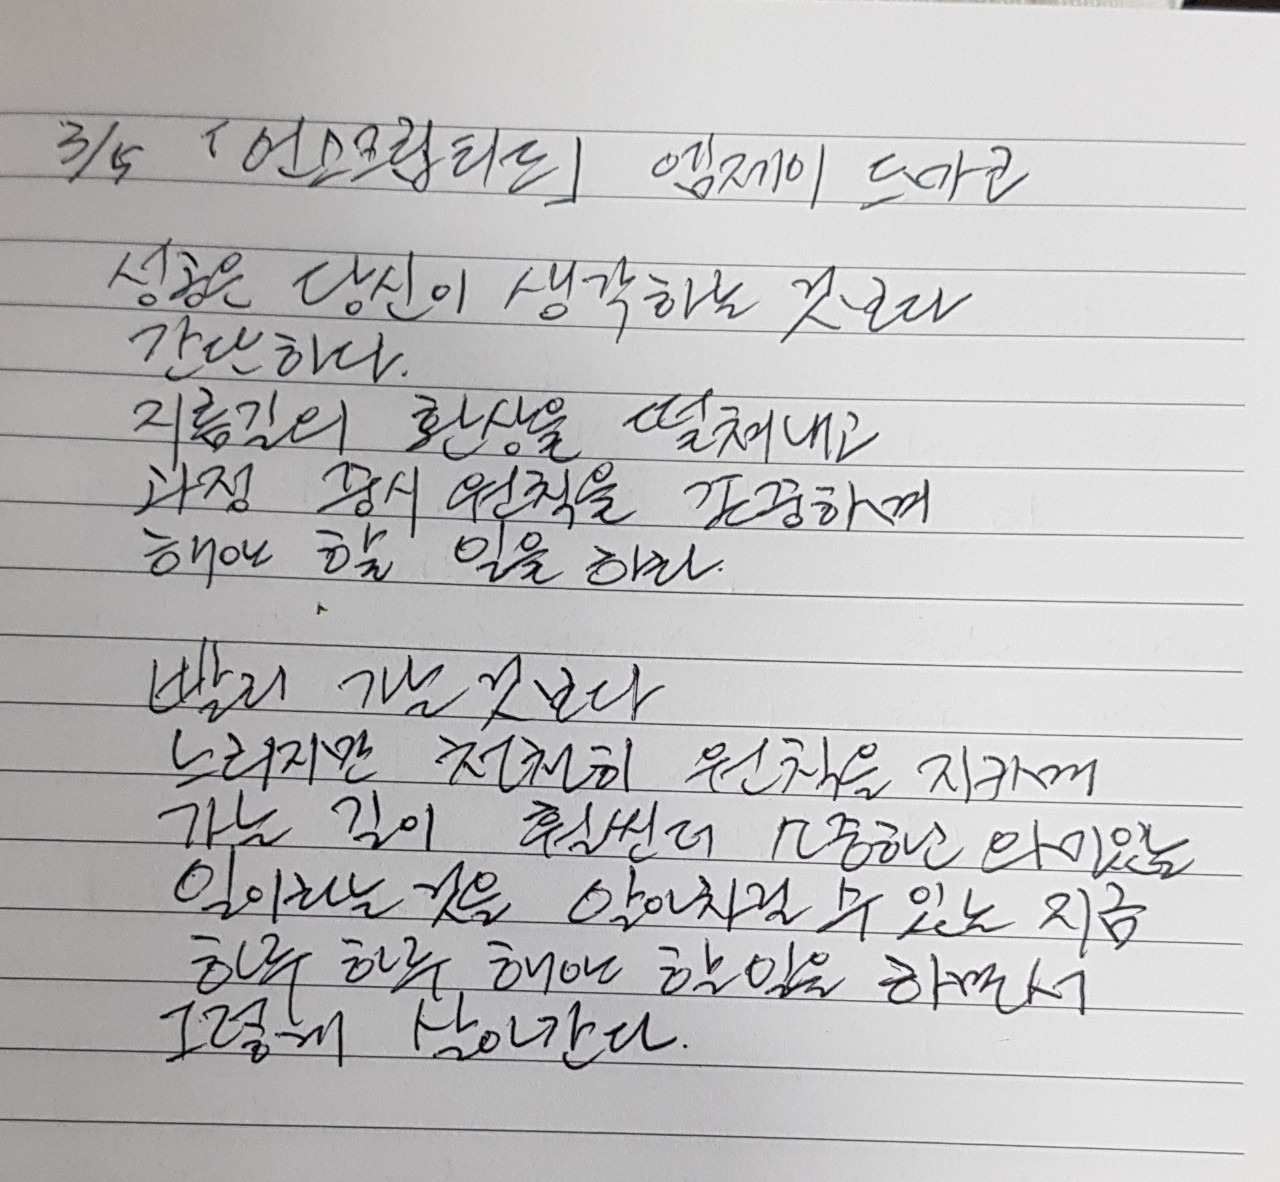 3/5 「언스크립티드」 엠제이 드마코
성공은 당신이 생각하는 것보다
간단하다.
지름길의 환상을 떨쳐내고
과정 중시 원칙을 존중하며
해야 할 일을 하라.
빨리 가는 것보다
느리지만 천천히 원칙을 지키며
가는 길이 훨씬 더 소중하고 의미있는
일이라는 것을 알아차릴 수 있는 지금
하루 하루 해야 할일을 하면서
그렇게 살아간다.